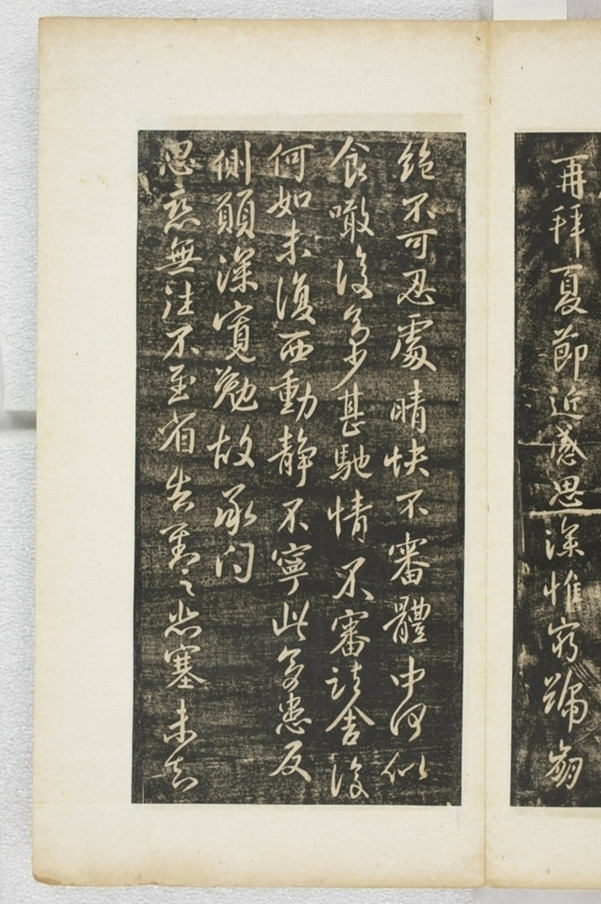 再拜夏節近感思深惟窮號崩
絕不可忍處晴快不審體中何似
食噉復多少甚馳情不審諸舍復
何如未復西動靜不寧此多患反
側願深寬勉故承問
忽忽無注不至省告慰之悲塞未知